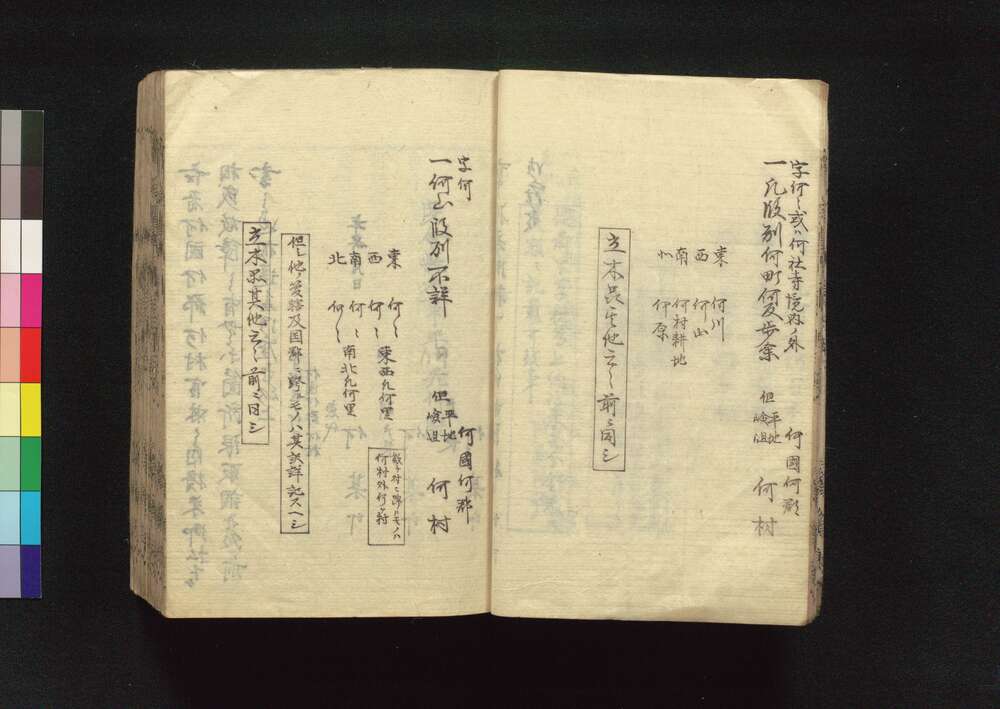 字何〻或ハ何社寺境内ノ外
一凡段別何町何反歩余
但 平地
嶮沮
何國何郡
何村
東 何川
西 何山
南 何村耕地
北 何原
立木品其他云〻前ニ同シ
字何
一何山段別不詳
但 平地
嶮沮
何國何郡
何村
東 何〻
西 何〻 東西凡何里
南 何〻 南北凡何里
北 何〻
数ヶ村ニ跨ルモノハ
何村外何ヶ村
但シ他ノ受・及国郡ニ跨ルモノハ其訳詳記スヘシ
立木品其他云〻前ニ同シ